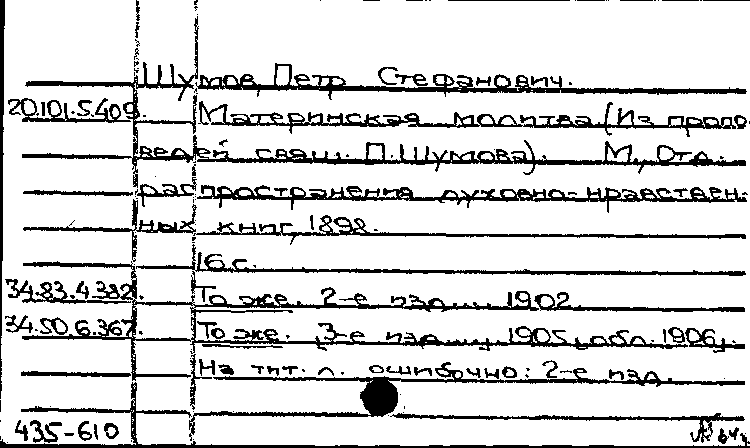 Шумов, Петр Стефанович.
20.101.5.409. Материнская молитва. (Из пропо-
ведей свящ. П. Шумова). М., Отд.
распространения духовно-нравствен-
ных книг, 1898.
16 с.
34.83.4.382. То же. 2-е изд.... 1902.
34.50.6.367. То же. [3-е изд....], 1905, обл. 1906].
На тит. л. ошибочно: 2-е изд.
435-610